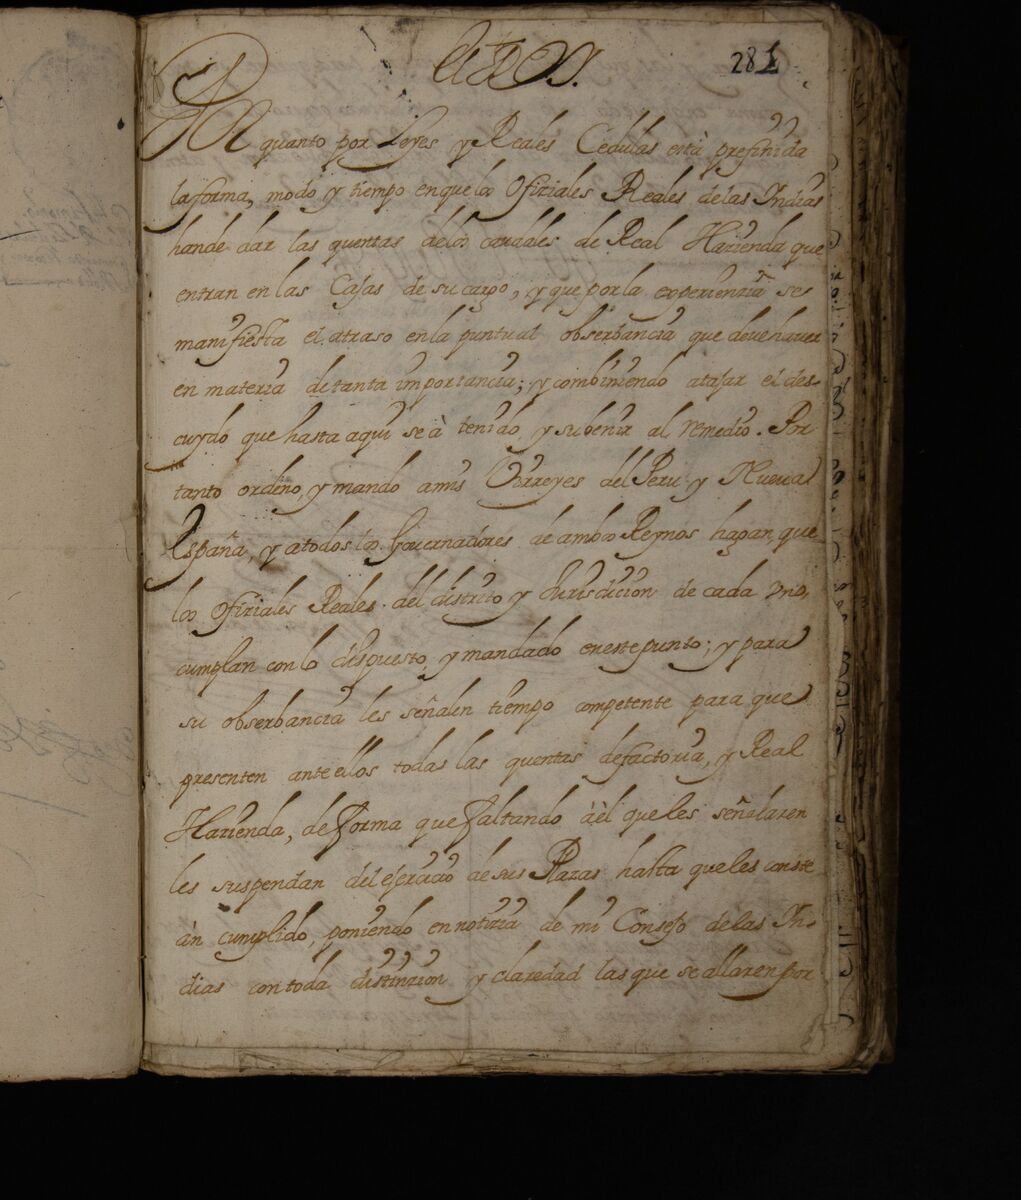 281
El Rey.
Por quanto por Leyes y Reales Cedulas està prefinida
la forma, modo y tiempo en que los Ofiziales Reales de las Indias
han de dar las quentas de los caudales de Real Hazienda que
entran en las Cajas de su cargo, y que por la experienzia se
manifiesta el atraso en la puntual obserbancia que deve haver
en materia de tanta importancia; y combiniendo atajar el des-
cuydo que hasta aqui se à tenido, y subenir al remedio. Por
tanto ordeno, y mando a mis Virreyes del Peru y Nueva
España, y a todos los Governadores de ambos Reynos hagan que
los Ofiziales Reales del distrito y Jurisdicion de cada uno,
cumplan con lo dispuesto, y mandado en este punto; y para
su obserbancia les señalen tiempo competente para que
presenten ante ellos todas las quentas de factoria, y Real
Hazienda, de forma que faltando àèl que les señalaren
les suspendan del ejercicio de sus Plazas hasta que les conste
àn cumplido, poniendo en notizia de mi Consejo de las In-
dias con toda distinzion y claredad las que se allaren por